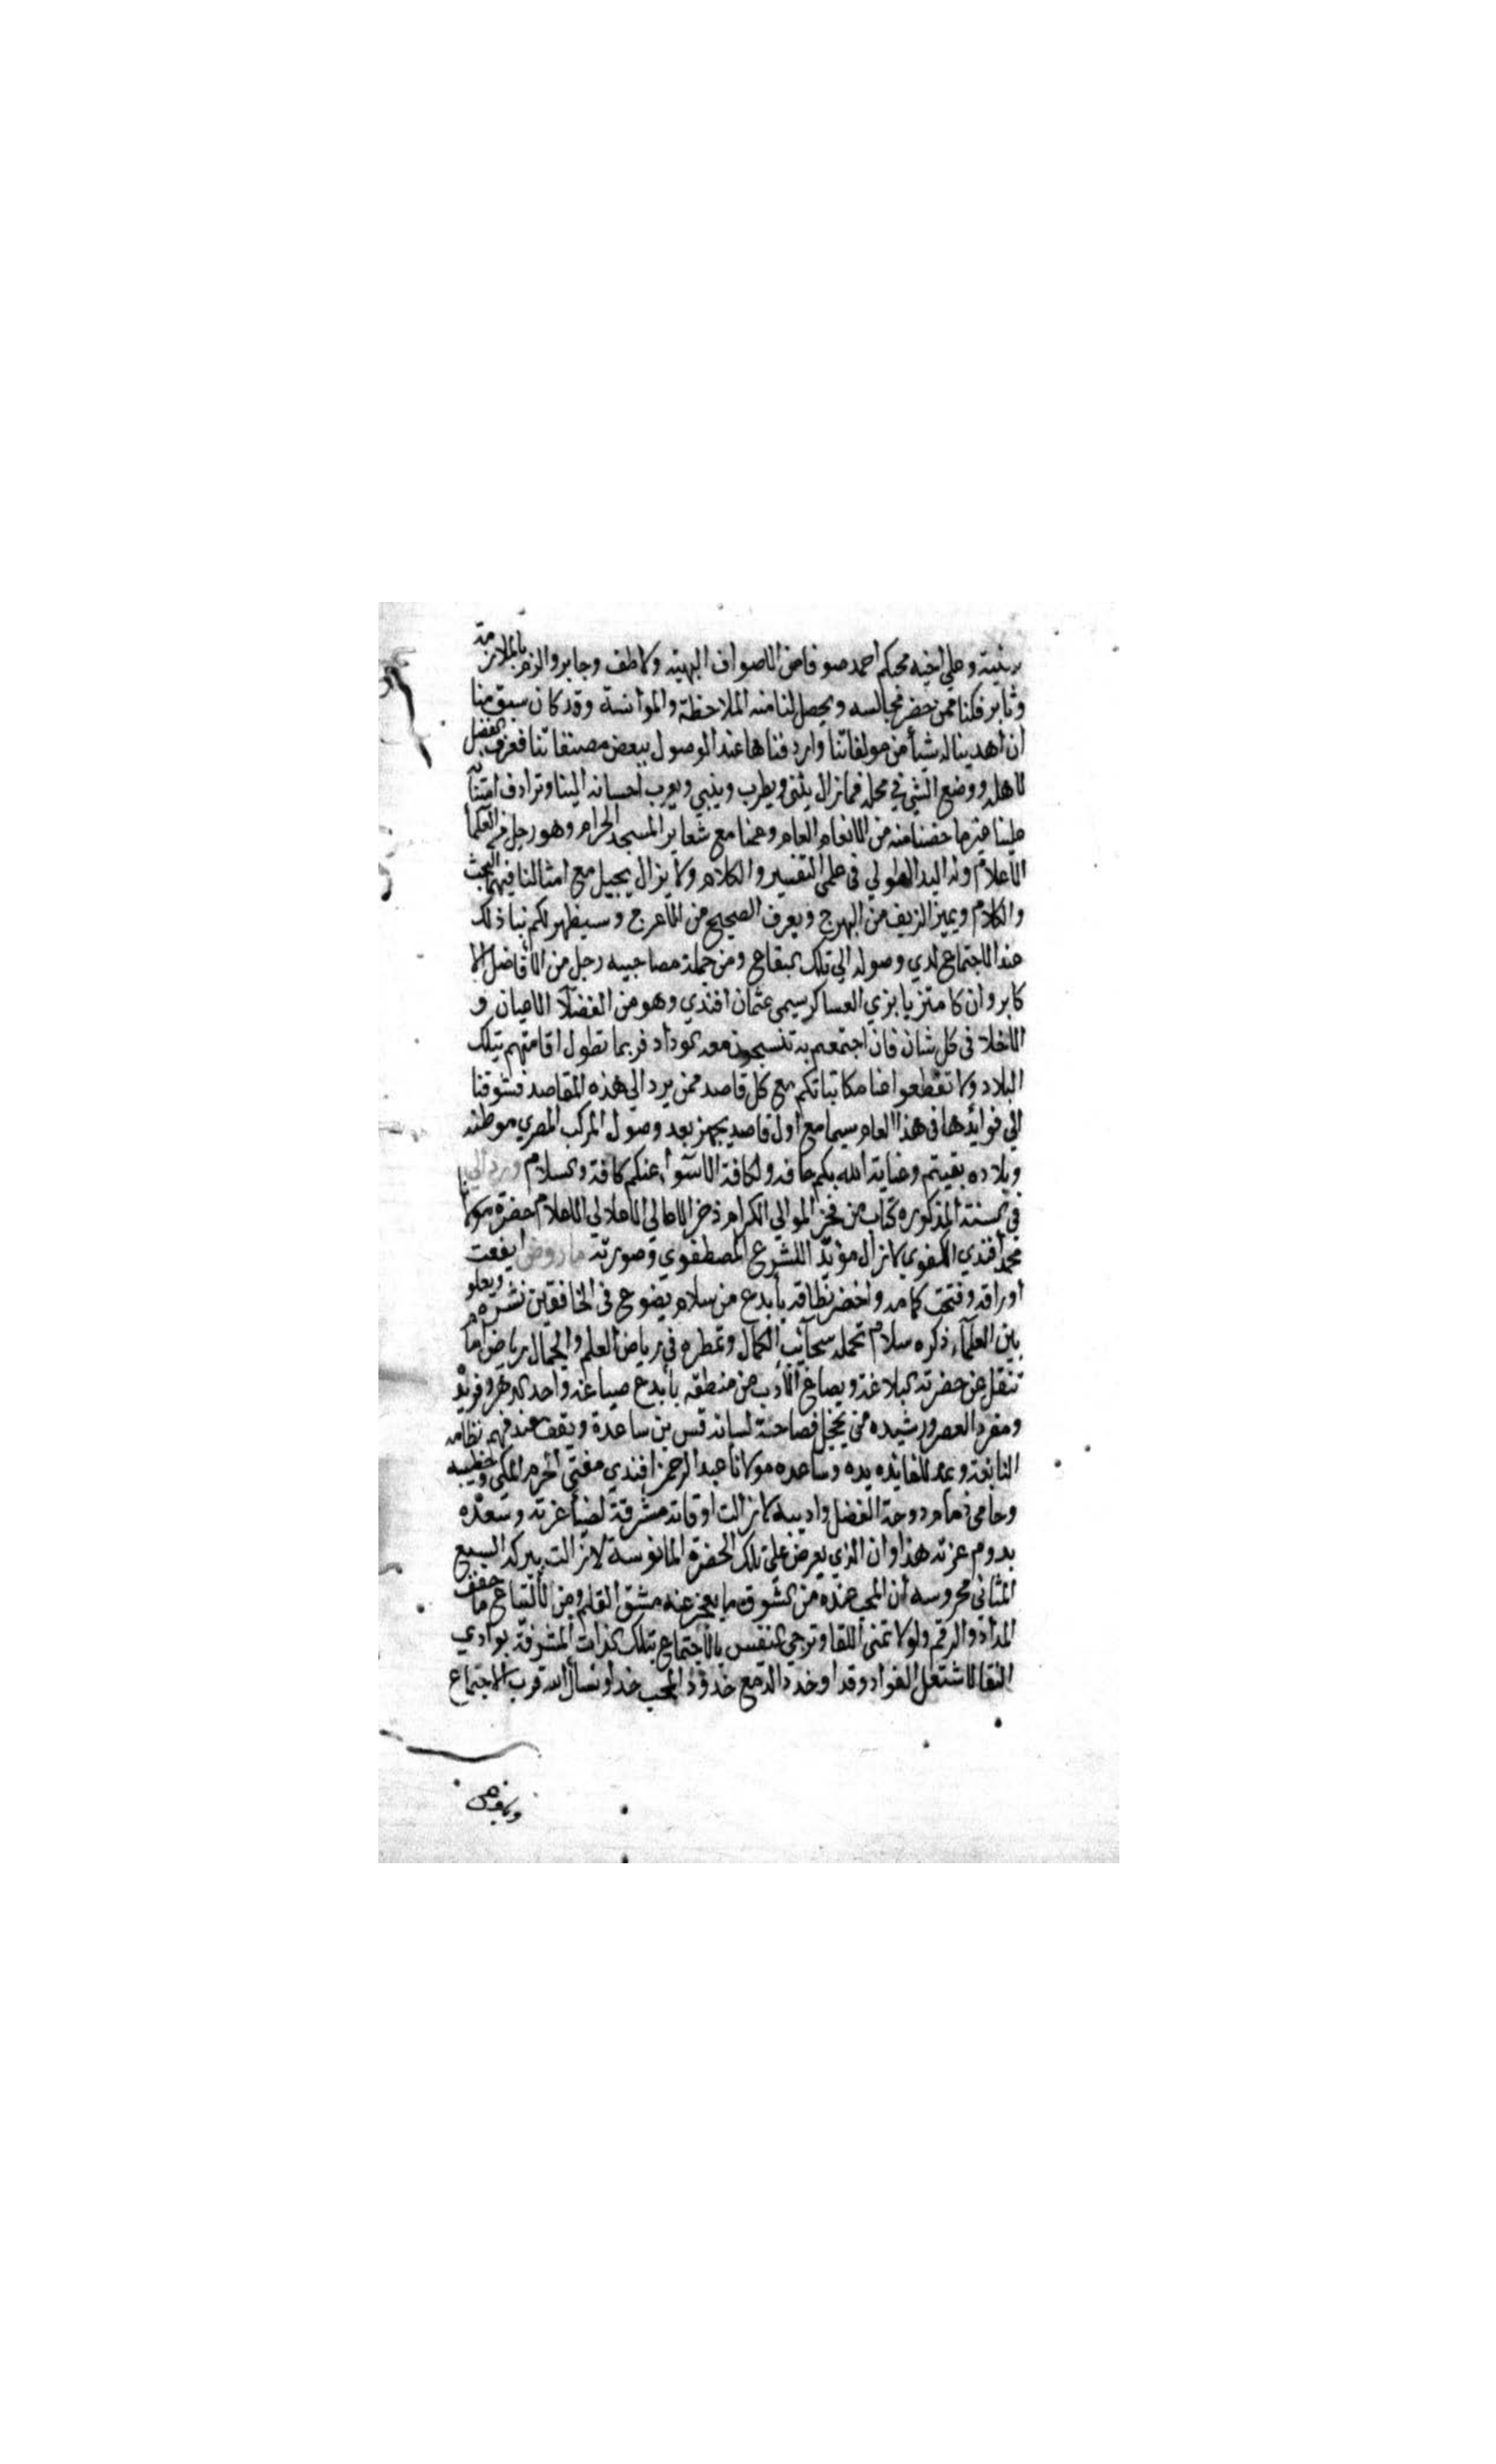 وعلي اخيه محبكم احمد صوفا من الاصواف البهية ولاطف وجابر والزم بالملازمة
وثابر فكنا ممن حضر مجالسه ويحصل لنا منه الملاحظة والموانسة وقد كان سبق منا
ان اهدينا له شيأ من مولفاتنا واردفناها عند الوصول ببعض مصنفاتنا فعرف الفضل
لاهله ووضع الشي في محله فما زال يثني ويطرب وينبي ويعرب احسانه الينا وترادف امتنانه
علينا غير ما خصنا منه من الانعام العام وعمنا مع شعاير المسجد الحرام وهو رجل من العلمآ
الاعلام وله اليد الطولي في علمي التفسير والكلام ولا يزال يجيل مع امثالنا فيهما البحث
والكلام ويميز الزيف من البهرج ويعرف الصحيح من الاعرج وسيظهر لكم نبا ذلك
عند الاجتماع لدي وصوله الي تلك البقاع ومن جملة مصاحبيه رجل من الافاضل الا
كابر وان كا متزيا بزي العساكر يسمي عثمان افندي وهو من الفضلآ الاعيان و
الاخلا في كل شان فان اجتمعتم به تنسجون معه الوداد فربما تطول اقامتهم بتلك
البلاد ولا تقطعوا عنا مكاتباتكم مع كل قاصد ممن يرد الي هذه المقاصد فتشوقنا
الي فوائدها في هذا العام سيما مع اول قاصد يجهز بعد وصول المركب المصري موطنه
وبلاده بقيتم وعناية الله بكم حافه ولكافة الاسوآ عنكم كافة والسلام ورد الي
في السنة المذكوره كتاب من فخر الموالي الكرام ذخر الاهالي الاعلام حضرة مولانا
محمد افندي الكفوي لا زال مؤيدا للشرع المصطفوي وصورته ما روض اينعت
اوراقه وفتحت كمامه واخضر نطاقه بأبدع من سلام يضوع في الخافقين نشره ويعلو
بين العلمآء ذكره سلام تحمله سحائب الكمال وتمطره في رياض العلم والجمال رياض اما
تنقل عن حضرته البلاغة ويصاغ الأدب من منطقه بأبدع صياغه واحد الدهر وفريده
ومفرد العصر ورشيده من يخجل فصاحة لسانه قس بن ساعدة ويقف عند فهم نظامه
النابغة ويمد للفايده يده وساعده مولانا عبد الرحمن افندي مفتي الحرم المكي وخطيبه
وحامي ذمام دوحة الفضل واديبه لا زالت اوقاته مشرقة لضيآ غرته وسعده
بدوم عزته هذا وان الذي يعرض علي تلك الحضرة المانوسة لا زالت ببركه السبع
المثاني محروسه أن المحب عنده من الشوق ما يعجز عنه مشق القلم ومن الالتياع ما جفف
المداد والرقم ولولا تمني اللقا وترجي النفس بالاجتماع بتلك الذات المشرفة بوادي
النقا لاشتعل الفواد وقد اوخدد الدمع خدود المحب خدا ونسأل الله قرب الاجتماع